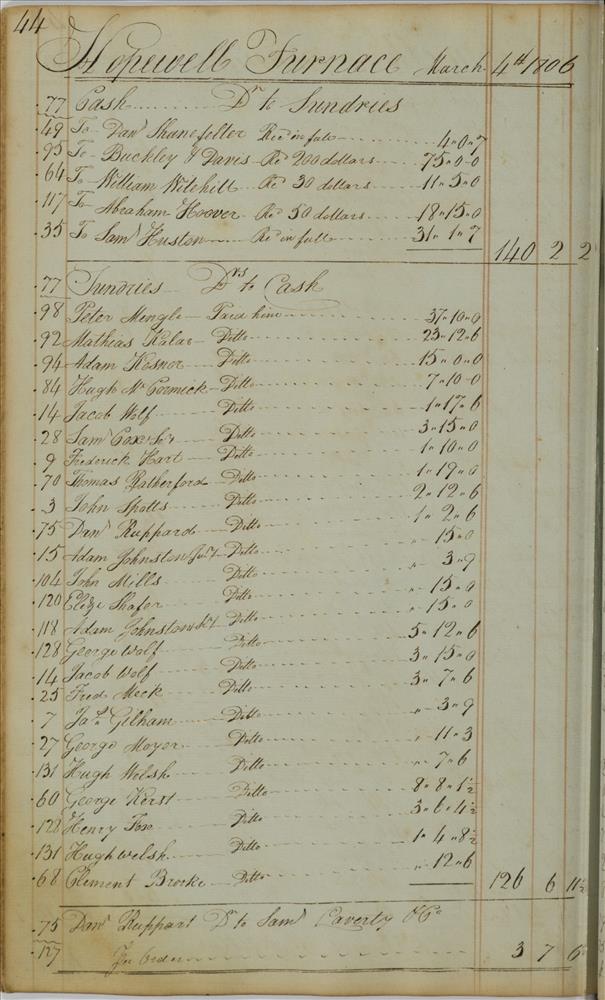 44
Hopewell Furnace March 4th 1806
.77 Cash Dr to Sundries
.49 To Danl Shanefelter Recd in full 4"0"7
.95 To Buckley & Davis Recd 200 dollars 75"0"0
.64 To William Witehill Recd 30 dollars 11"5"0
.117 To Abraham Hoover Recd 50 dollars 18"15"0
.35 To Saml Huston Recd in full 31"1"7 140 2 2
.77 Sundries Drs to Cash
.98 Peter Mengle Paid him 37"10"0
.92 Mathias Kalar Ditto 23"12"6
.94 Adam Kesnor Ditto 15"0"0
.84 Hugh Mc Cormick Ditto 7"10"0
.14 Jacob Wolf Ditto 1"17"6
.28 Saml Cox Sr Ditto 3"15"0
.9 Frederick Hart Ditto 1"10"0
.70 Thomas Rutherford Ditto 1"19"0
.3 John Spotts Ditto 2"12"6
.75 Danl Ruppard Ditto 1"2"6
.15 Adam Johnston Junr Ditto "15"0
.104 John Mills Ditto "3"9
.120 Eliza Shafer Ditto "15"0
.118 Adam Johnston Sr Ditto "15"0
.128 George Wolf Ditto 5"12"6
.14 Jacob Wolf Ditto 3"15"0
.25 Fred Meck Ditto 3"7"6
.7 Jas Gilham Ditto "3"9
.27 George Moyer Ditto "11"3
.131 Hugh Welsh Ditto "7"6
.60 George Kerst Ditto 8"8"1½
.128 Henry Fox Ditto 3"6"4½
.131 Hugh Welsh Ditto 1"4"8½
.68 Clement Brooke Ditto "12"6 126 6 11½
.75 Danl Ruppart Dr to Saml Laverty & Co
.127 Per Order 3 7 6